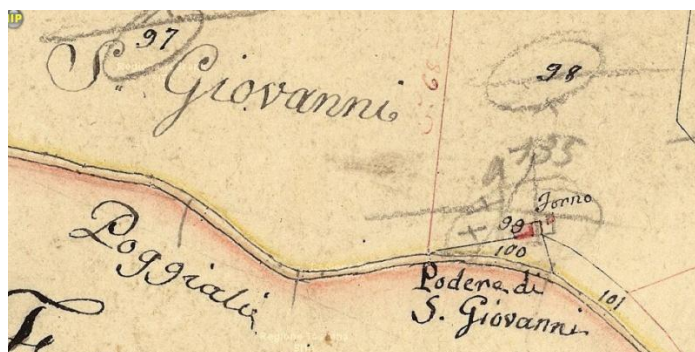 97
S. Giovanni
98
135
99
Forno
100
Poggiali
Podere di
S. Giovanni
101